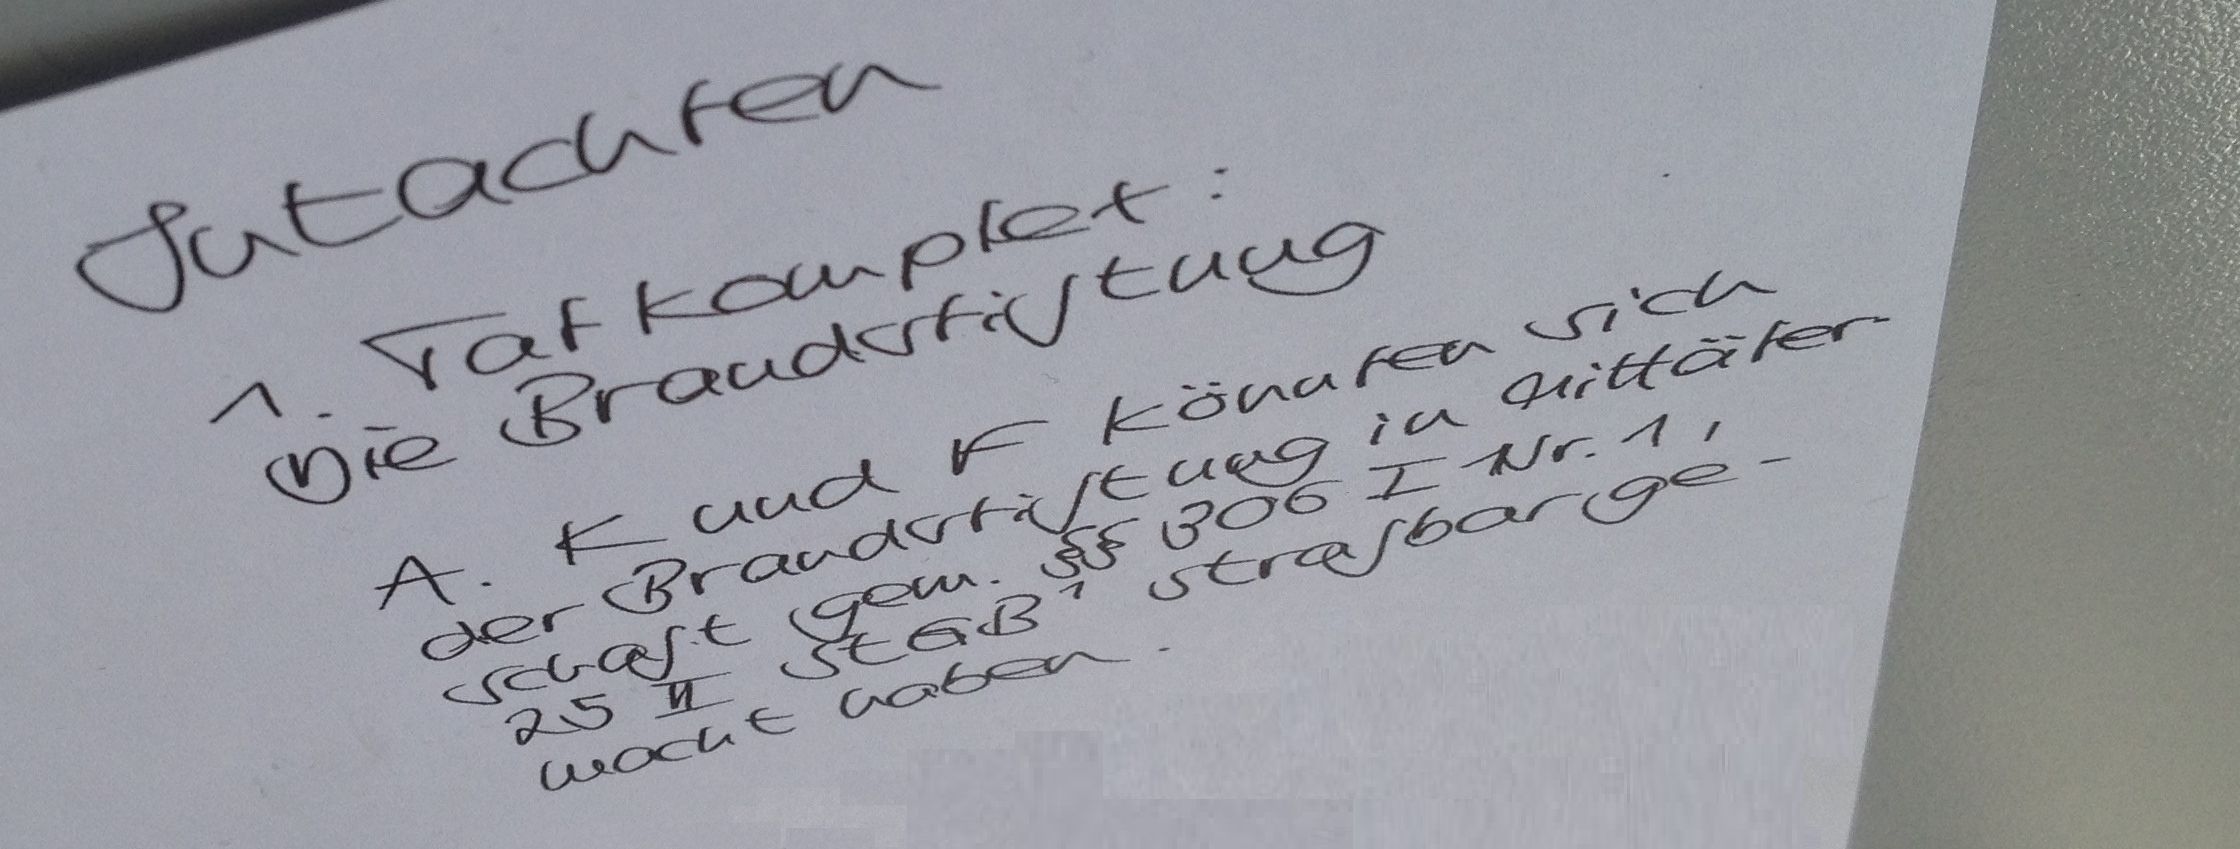 Gutachten
1. Tatkomplex:
Die Brandstiftung
A. K und F könnten sich
der Brandstiftung in Mittäter-
schaft gem. §§ 306 I Nr. 1,
25 II StGB¹ strafbar ge-
macht haben.